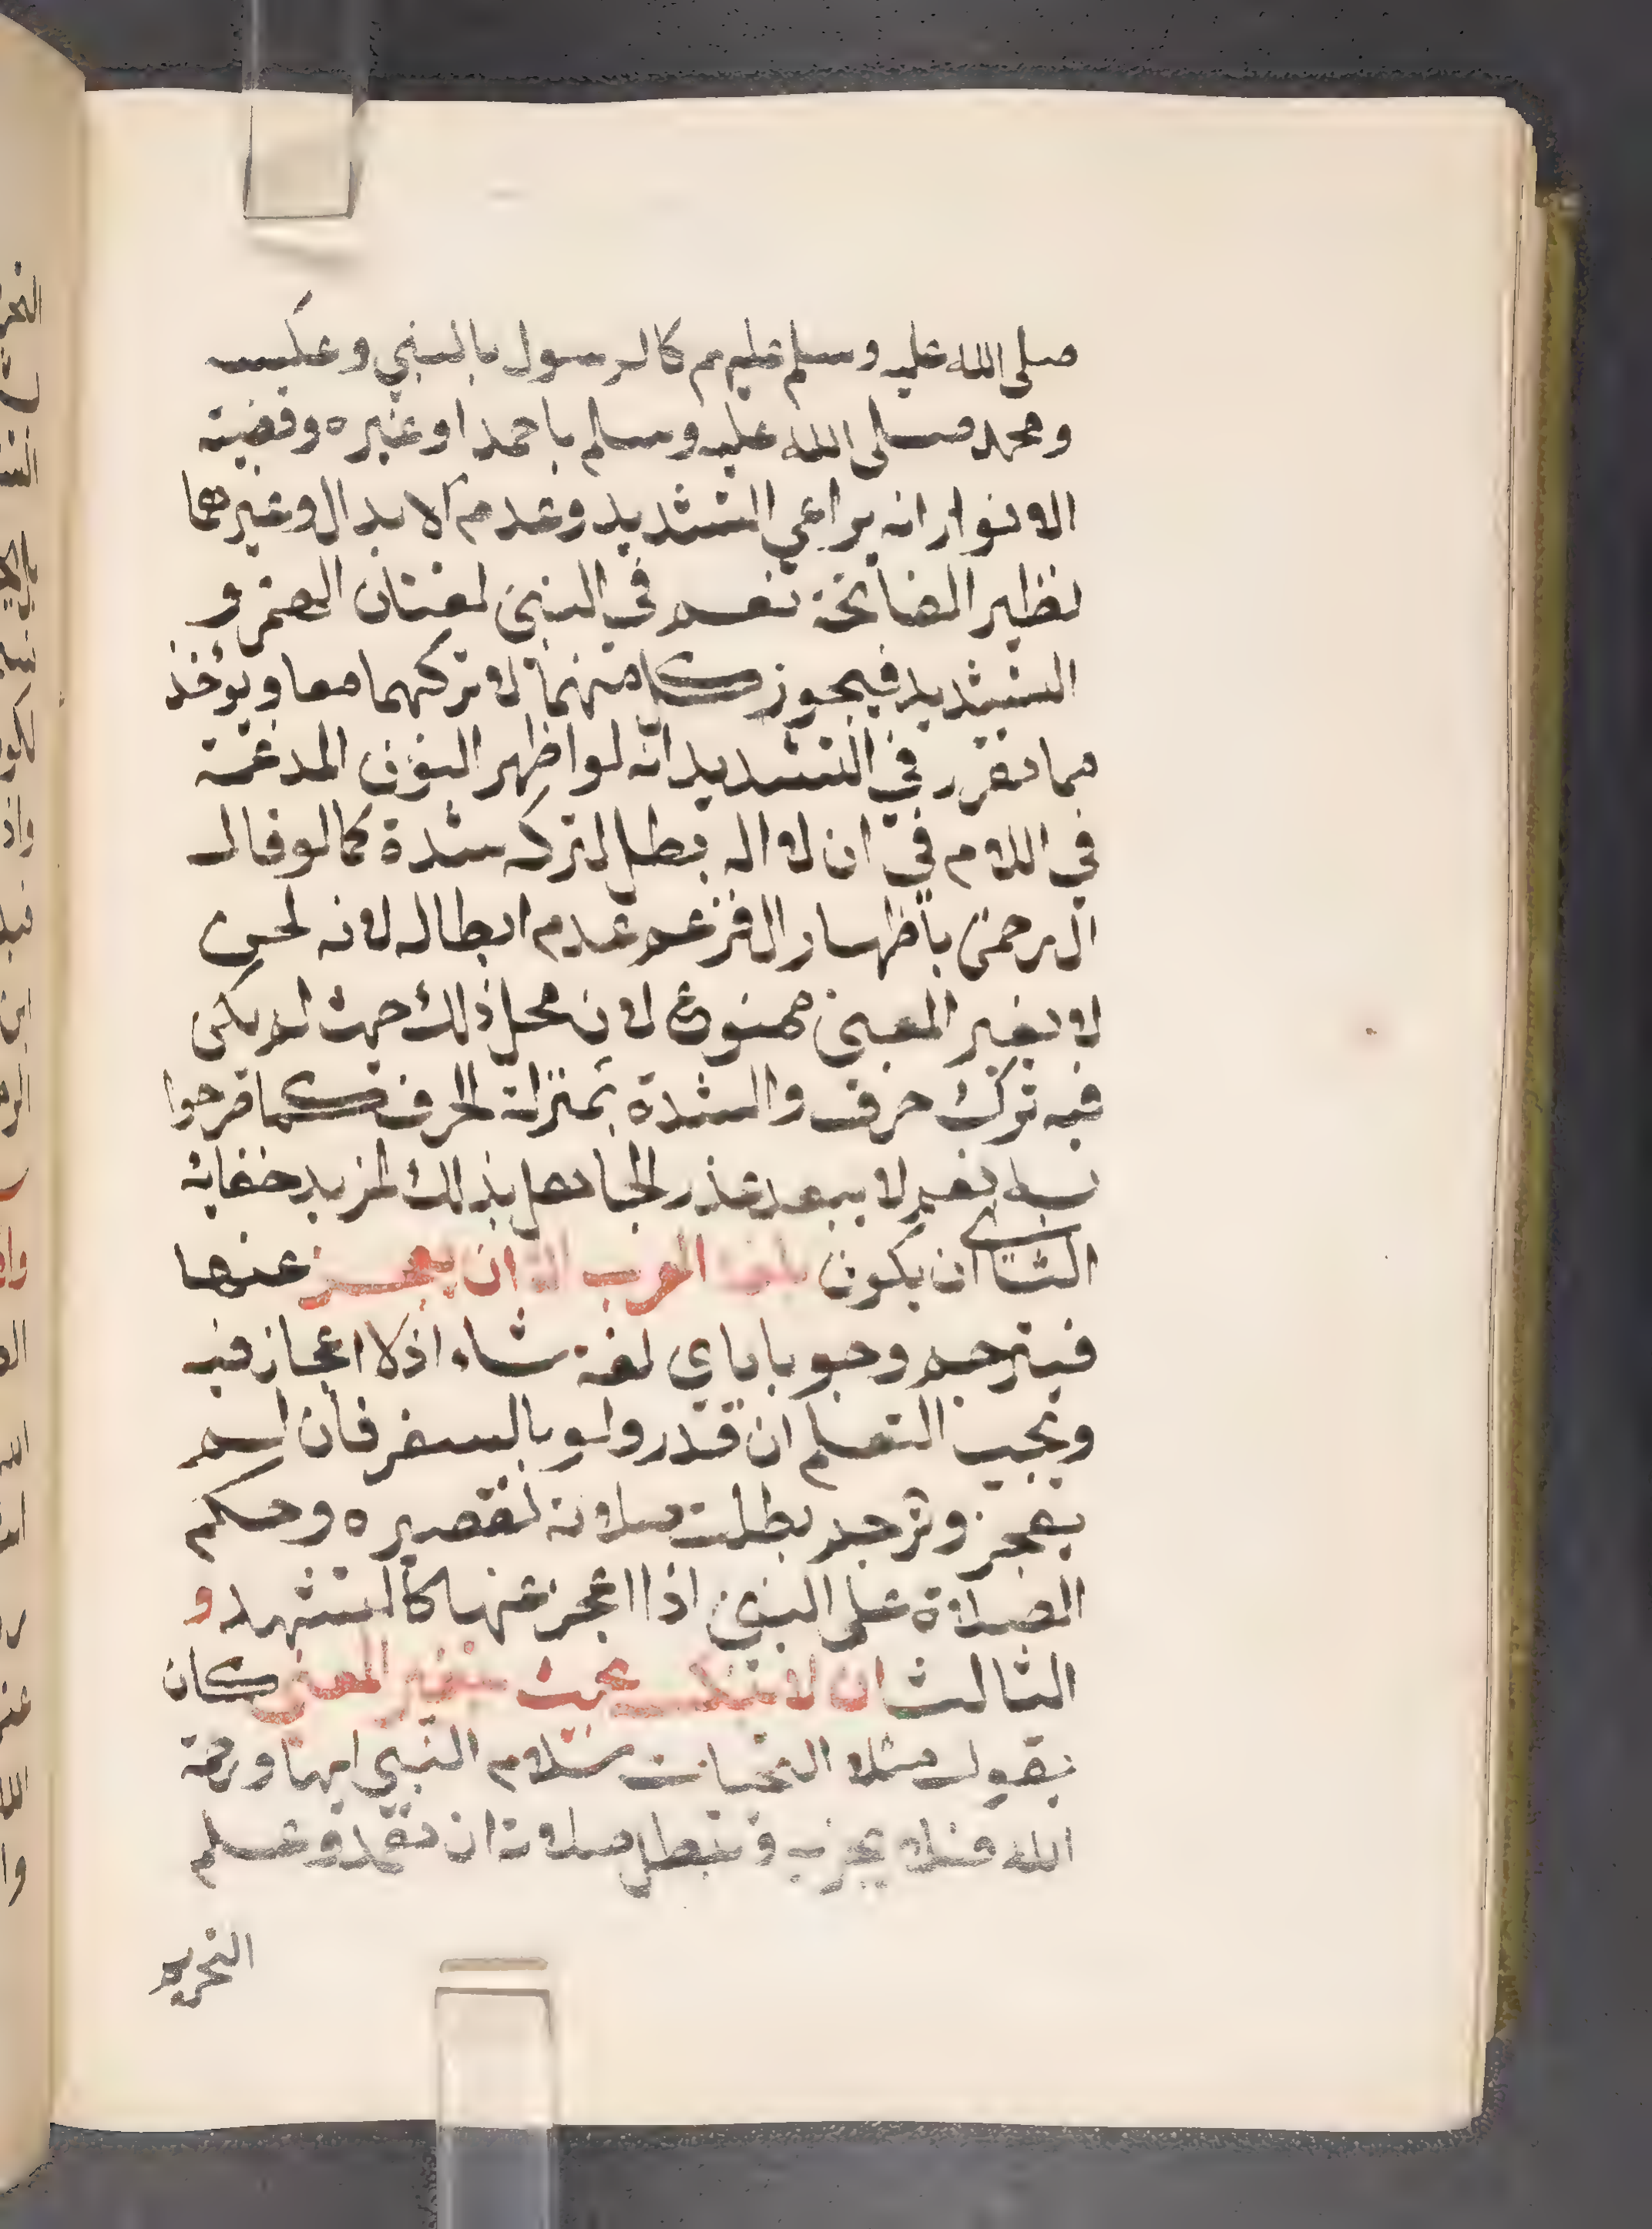 صلى الله عليه وسلم عليهم كالرسول بالنبي وعكسه
ومحمد صلى الله عليه وسلم باحمد او غيره وقضية
الانوار انه يراعي التشديد وعدم الابدال وغيرهما
نظير الفاتحة نعم في النبي لغتان الهمز و
التشديد فيجوز كل منهما لا تركهما معا ويؤخذ
مما تقرر في التشديد انه لو اظهر النون المدغمة
في اللام في ان لا اله بطل لتركه شدة كما لو قال
الرحمن باظهار ال فزعم عدم ابطاله لانه لحن
لا يغير المعنى ممنوع لان محل ذلك حيث لم يكن
فيه ترك حرف والشدة بمنزلة الحرف كما صرحوا
به نعم لا يبعد عذر الجاهل بذلك لمزيد خفائه
الثاني ان يكون بلغة العرب الا ان يعجز عنها
فيترجم وجوبا باي لغة شاء اذ لا اعجاز فيه
ويجب التعلم ان قدر ولو بالسفر فان لم
يعجز وترجم بطلت صلاته لتقصيره وحكم
الصلاة على النبي اذا اعجز عنها كالتشهد و
الثالث ان لا ينكسه بحيث يتغير المعنى كان
يقول مثلا التحيات سلام النبي ايها ورحمة
الله فلا يجزيه وتبطل صلاته ان تعمد وعلم
التحريم